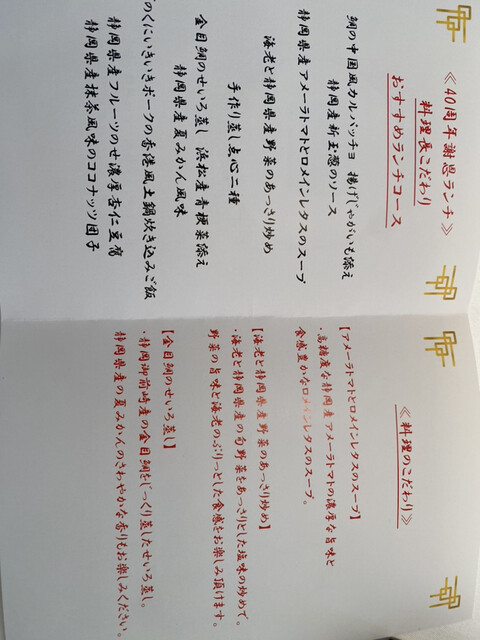 ≪40周年謝恩ランチ≫
料理長こだわり
おすすめランチコース
鯛の中国風カルパッチョ 揚げじゃがいも添え
静岡産新玉葱のソース
静岡県産アメーラトマトとロメインレタスのスープ
海老と静岡県産野菜のあっさり炒め
手作り蒸し点心二種
金目鯛のせいろ蒸し 浜松産青梗菜添え
静岡県産夏みかん風味
のくにいきいきポークの香港風土鍋炊き込みご飯
静岡県産フルーツのせ濃厚杏仁豆腐
静岡県産抹茶風味のココナッツ団子
≪料理のこだわり≫
【アメーラトマトとロメインレタスのスープ】
・高糖度な静岡産アメーラトマトの濃厚な旨味と
食感豊かなロメインレタスのスープ。
【海老と静岡県産野菜のあっさり炒め】
・海老と静岡県産の旬野菜をあっさりとした塩味の炒めで。
野菜の旨味と海老のぷりっとした食感をお楽しみ頂けます。
【金目鯛のせいろ蒸し】
・静岡御前崎産の金目鯛をじっくり蒸したせいろ蒸し。
静岡県産の夏みかんのさわやかな香りもお楽しみください。